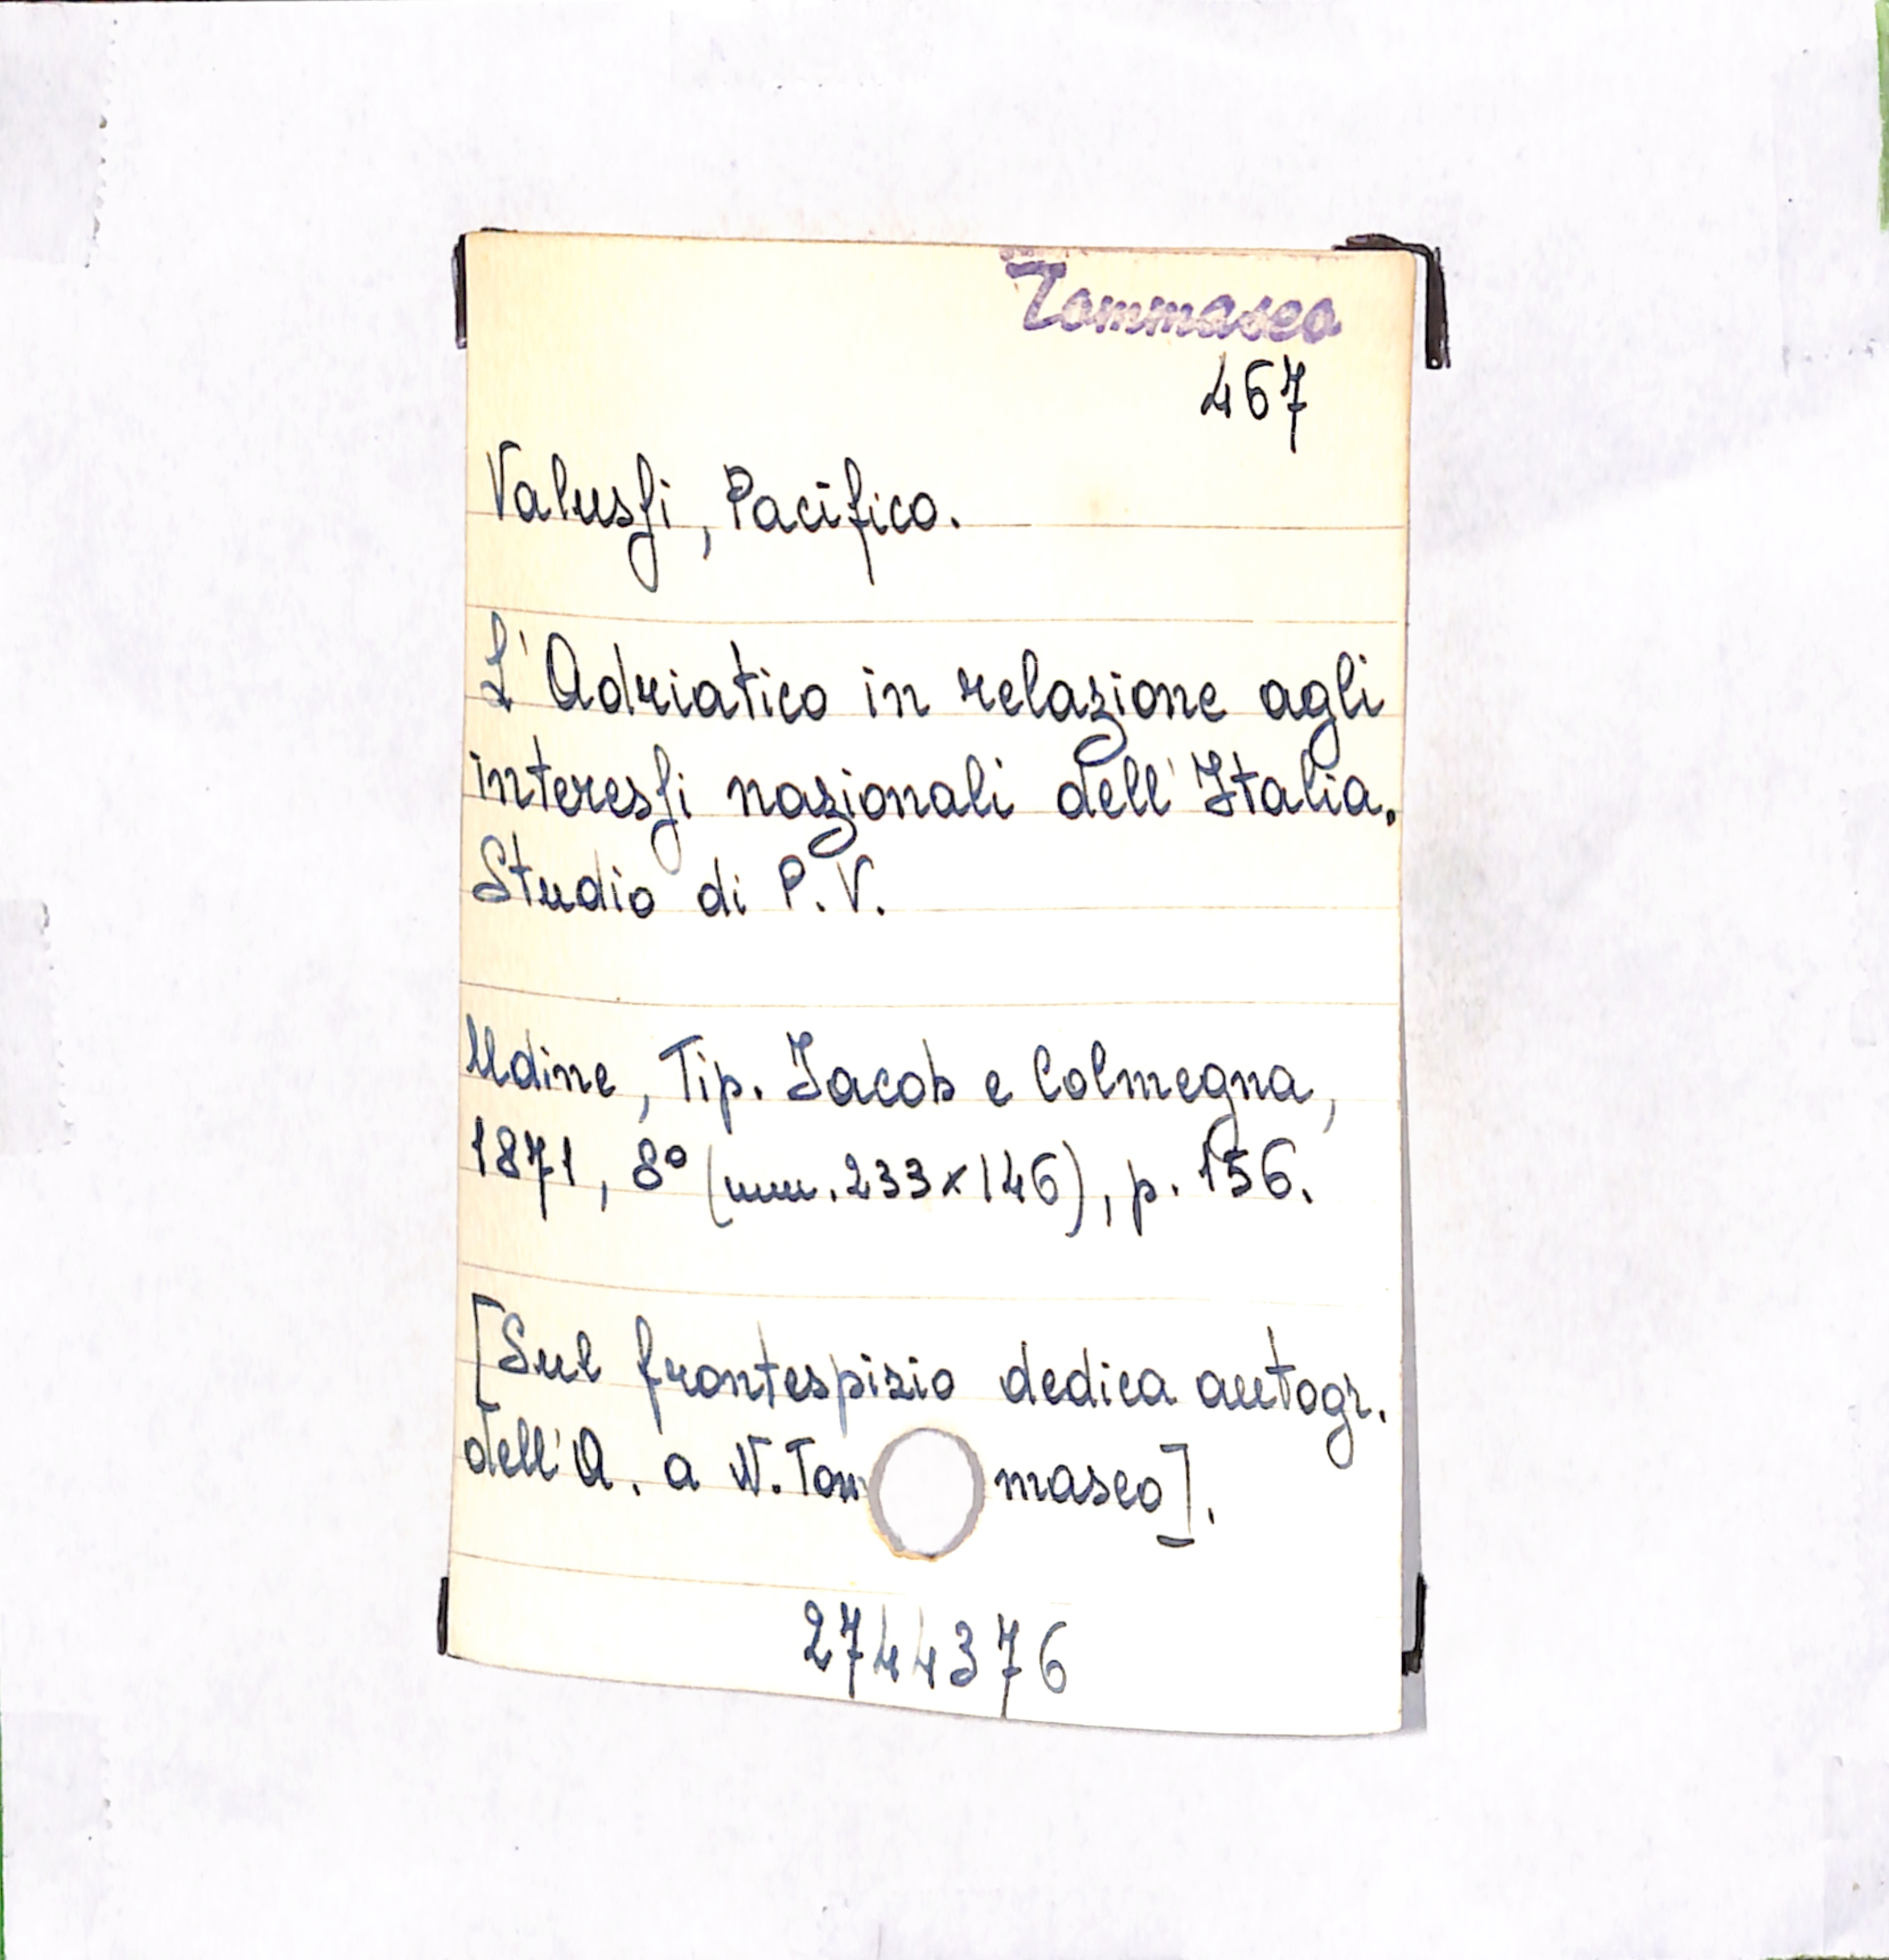 Tommaseo
467
Valussi, Pacifico.
L'Adriatico in relazione agli
interessi nazionali dell'Italia.
Studio di P.V.
Udine, Tip. Jacob e Colmegna,
1871, 8° (mm. 233x146), p. 156.
[Sul frontespizio dedica autogr.
dell'A. a N. Tommaseo].
2744376